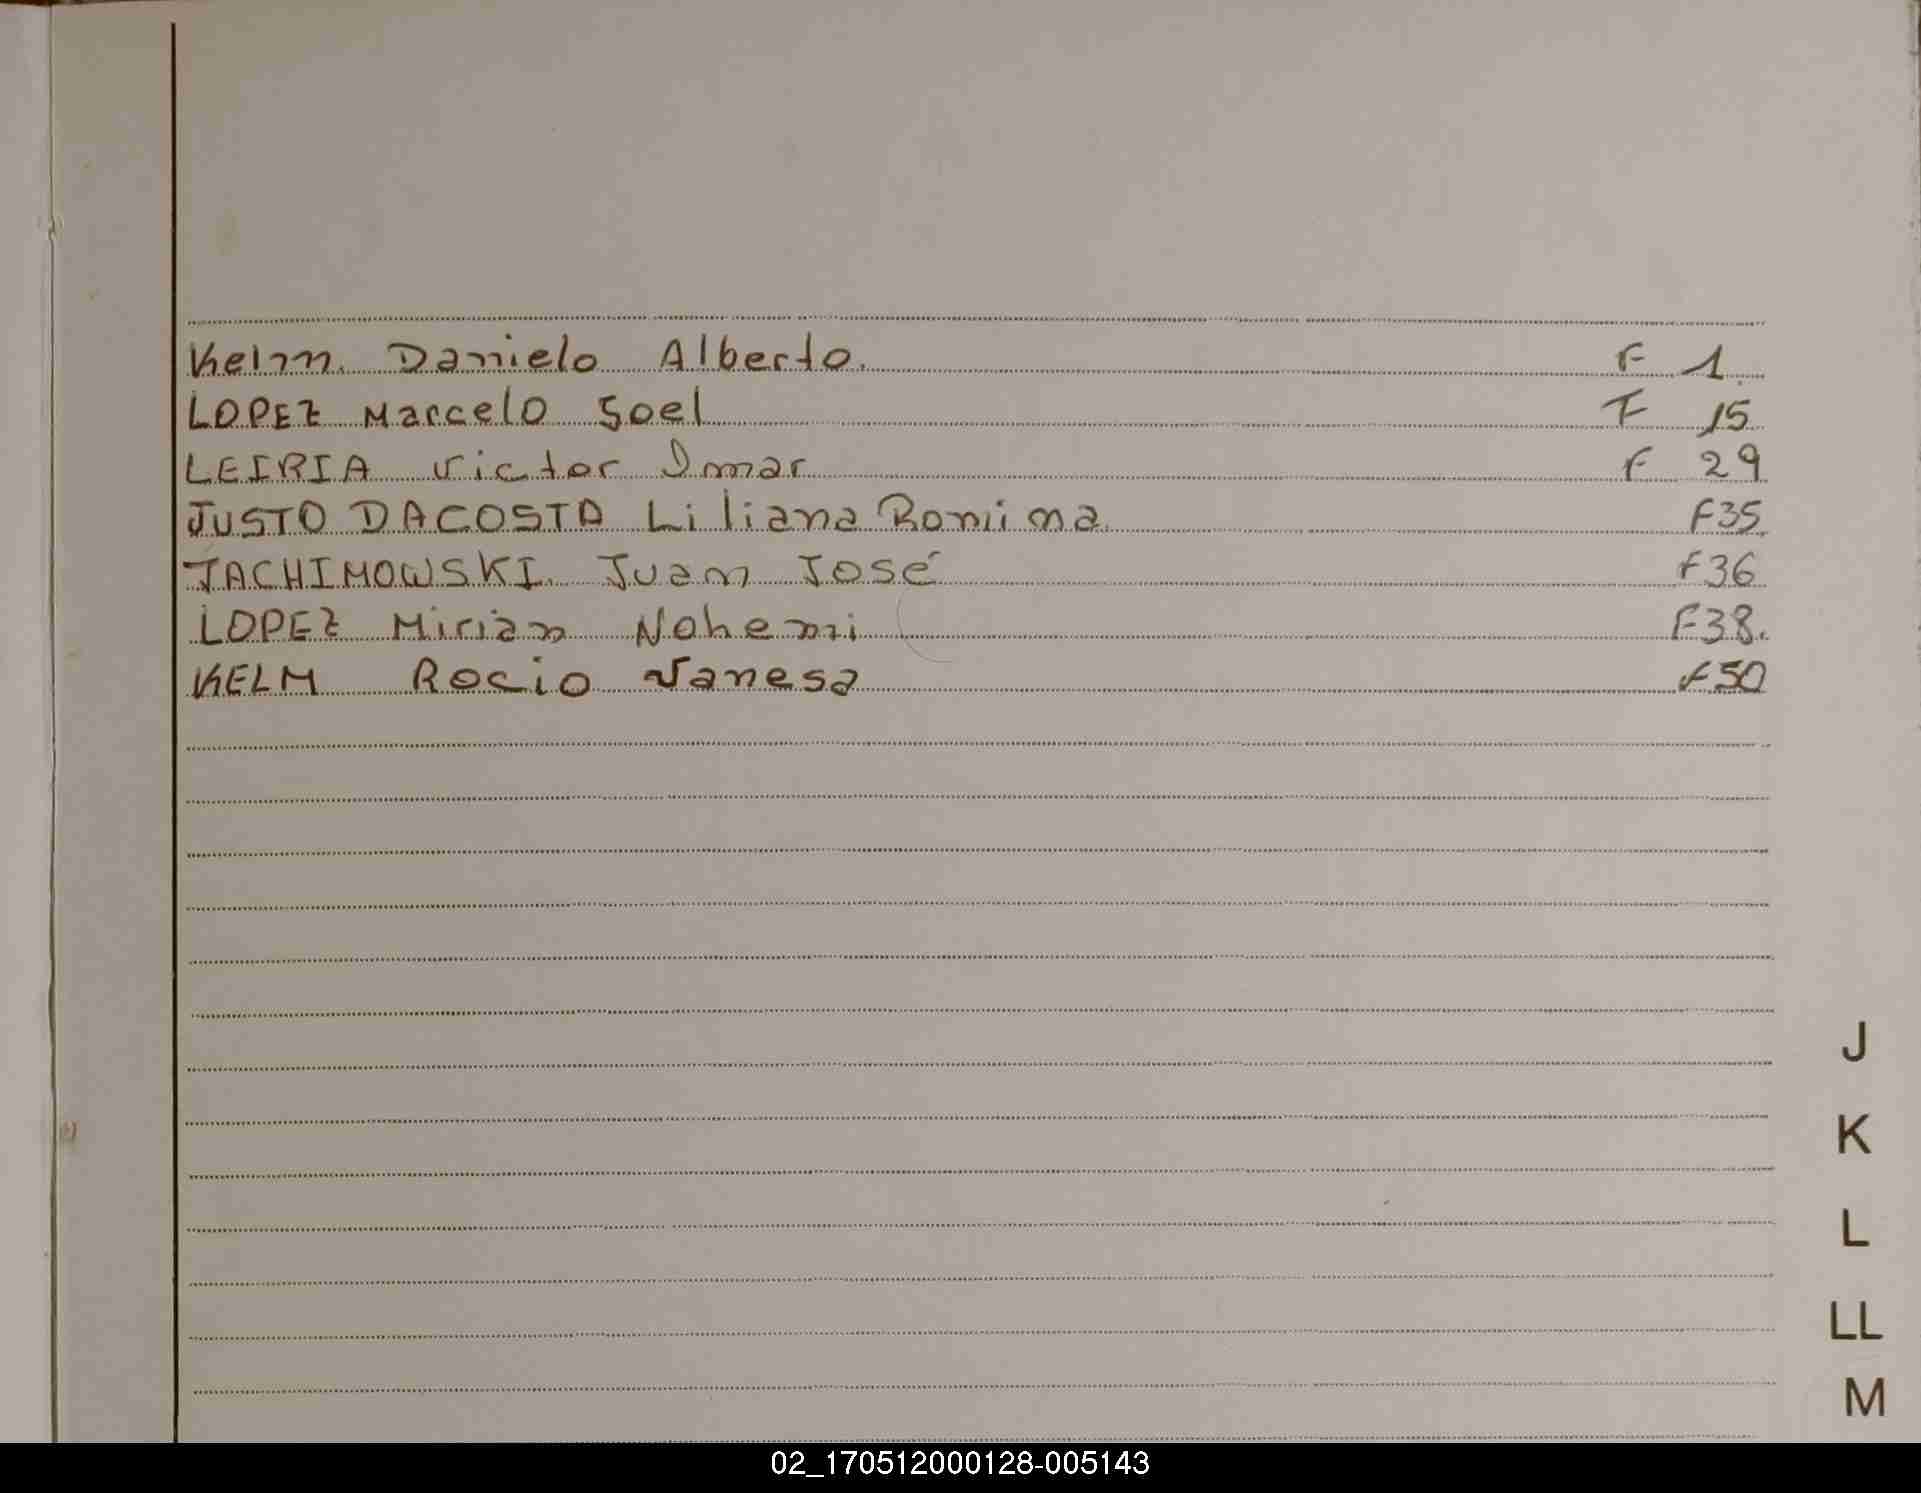 Kelm. Danielo Alberto. F 1.
LOPEZ Marcelo Joel F 15
LEIRIA Victor Omar F 29
JUSTO DACOSTA Liliana F35
JACHIMOWSKI. Juan José F36
LOPEZ Mirian Nohemi F38.
KELM Rocio Vanesa F50
J
K
L
LL
M
02_170512000128-005143